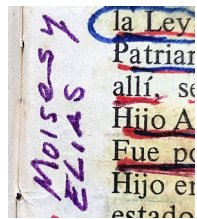 Moises y
ELIAS
la Ley
Patriar
allí, se
Hijo A
Fue po
Hijo en
estado